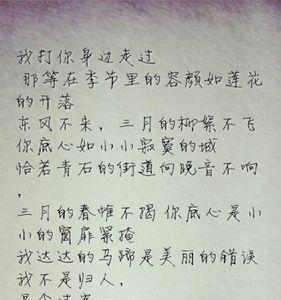 我打你身边走过
那等在季节里的容颜如莲花
的开落
东风不来，三月的柳絮不飞
你底心如小小寂寞的城
恰若青石的街道向晚音不响
，
三月的春帷不揭 你底心是小
小的窗扉紧掩
我达达的马蹄是美丽的错误
我不是归人，